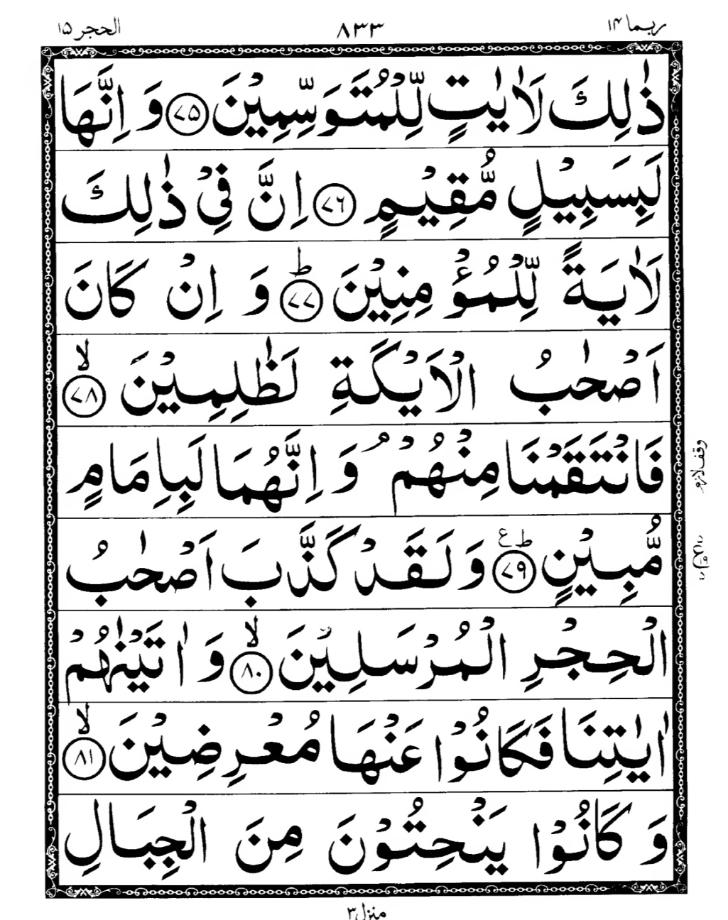 ربما ۱۴ ۸۳۳ الحجر ۱۵
ذٰلِكَ لَاٰيٰتٍ لِّلْمُتَوَسِّمِيْنَ ﴿۷۵﴾ وَ اِنَّهَا
لَبِسَبِيْلٍ مُّقِيْمٍ ﴿۷۶﴾ اِنَّ فِيْ ذٰلِكَ
لَاٰيَةً لِّلْمُؤْمِنِيْنَ ﴿۷۷﴾ؕ وَ اِنْ كَانَ
اَصْحٰبُ الْاَيْكَةِ لَظٰلِمِيْنَ ﴿۷۸﴾ۙ
فَانْتَقَمْنَا مِنْهُمْ ۘ وَ اِنَّهُمَا لَبِاِمَامٍ
وقف لازم
مُّبِيْنٍ ﴿۷۹﴾ؕع وَ لَقَدْ كَذَّبَ اَصْحٰبُ
الْحِجْرِ الْمُرْسَلِيْنَ ﴿۸۰﴾ۙ وَ اٰتَيْنٰهُمْ
اٰيٰتِنَا فَكَانُوْا عَنْهَا مُعْرِضِيْنَ ﴿۸۱﴾ۙ
وَ كَانُوْا يَنْحِتُوْنَ مِنَ الْجِبَالِ
منزل ۳